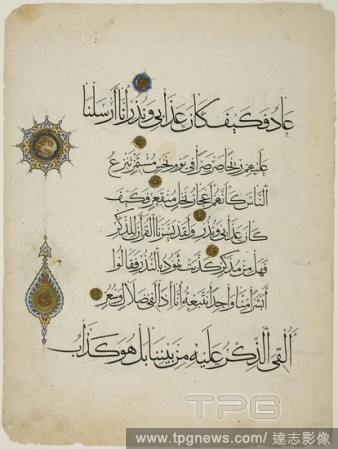 عاد فكيف كان عذابي ونذر انا ارسلنا
عليهم ريحا صرصرا في يوم نحس مستمر تنزع
الناس كانهم اعجاز نخل منقعر فكيف
كان عذابي ونذر ولقد يسرنا القران للذكر
فهل من مدكر كذبت ثمود بالنذر فقالوا
ابشرا منا واحدا نتبعه انا اذا لفي ضلال وسعر
االقي الذكر عليه من بيننا بل هو كذاب
TPG
www.tpgnews.com/ 達志影像